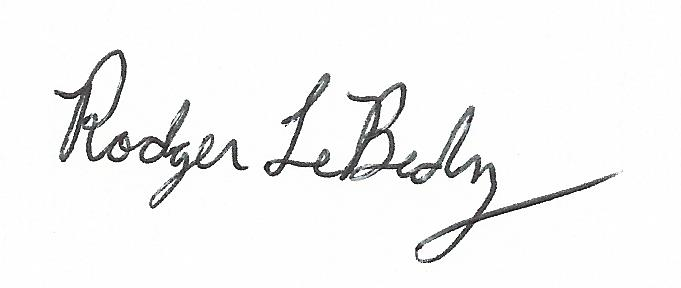 Rodger LeBedz